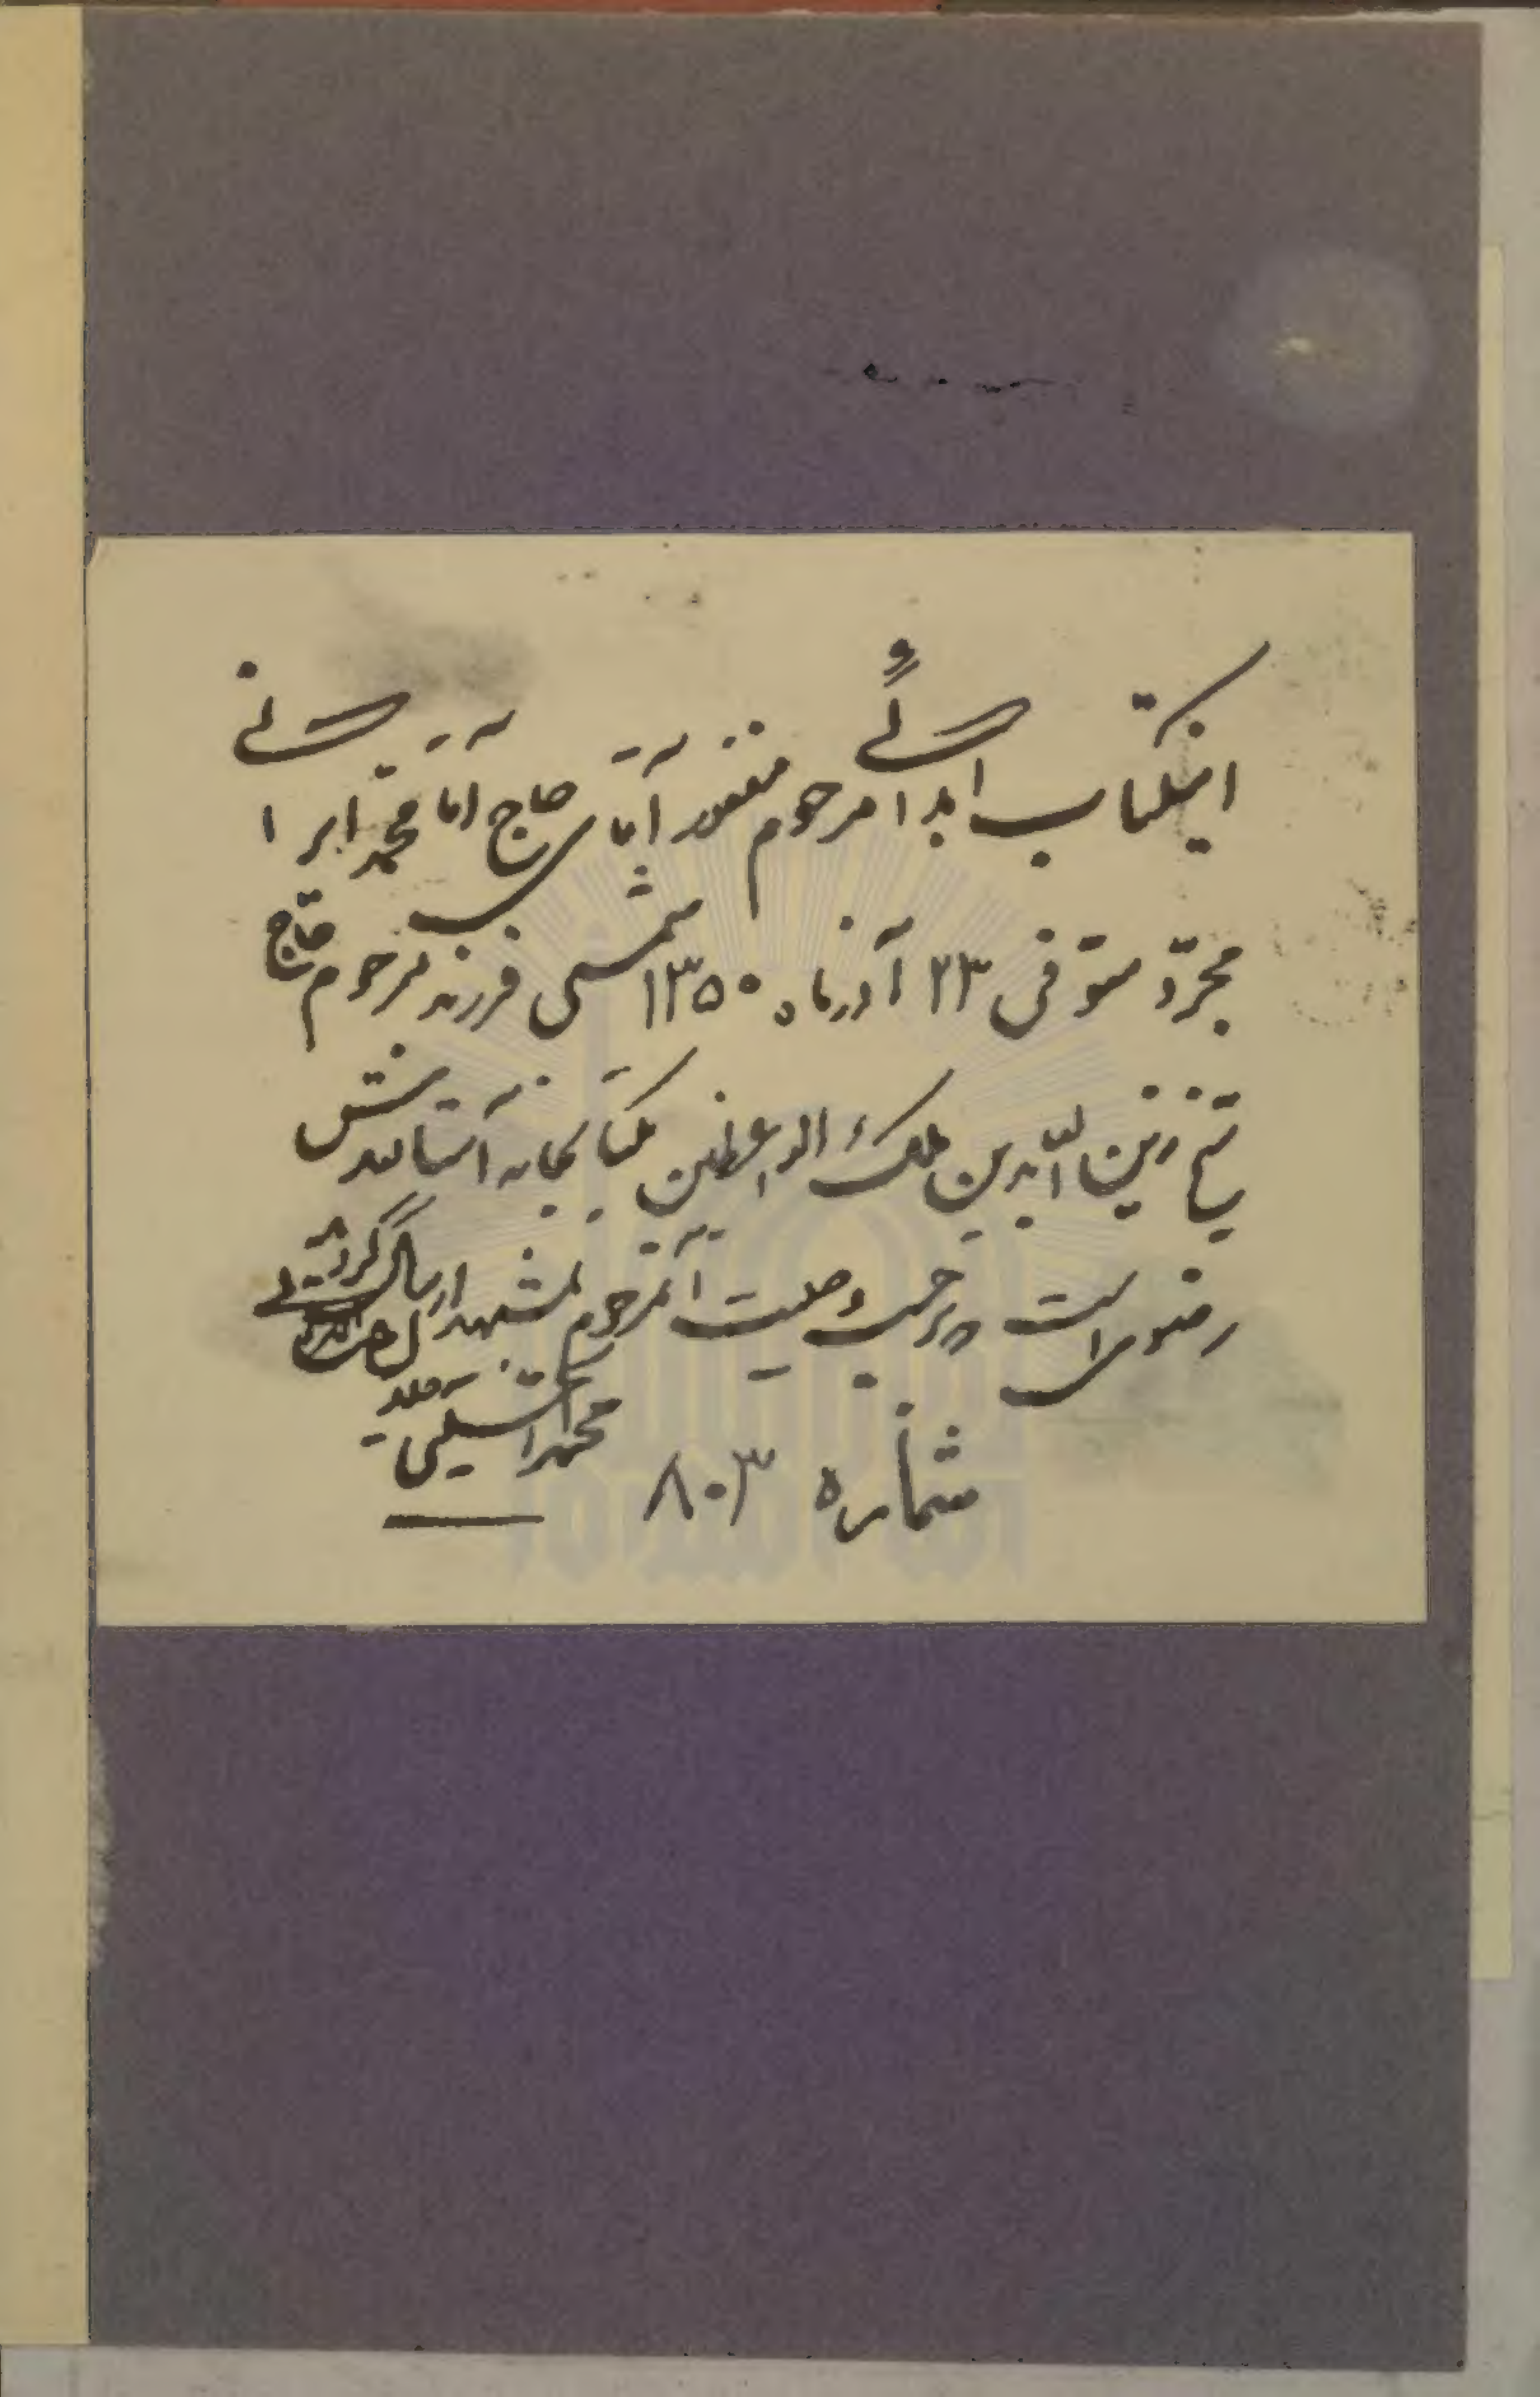 اینکتاب اهدائی مرحوم مغفور آقای حاج آقا محمد ایرانی
مجرّد متوفی ۲۳ آذرماه ۱۳۵۰ شمسی فرزند مرحوم حاج
شیخ زین الدین ملک الواعظین بکتابخانه آستانقدس
رضوی است و برحسب وصیت آنمرحوم بمشهد ارسال گردید
محمد
شماره ۸۰۳